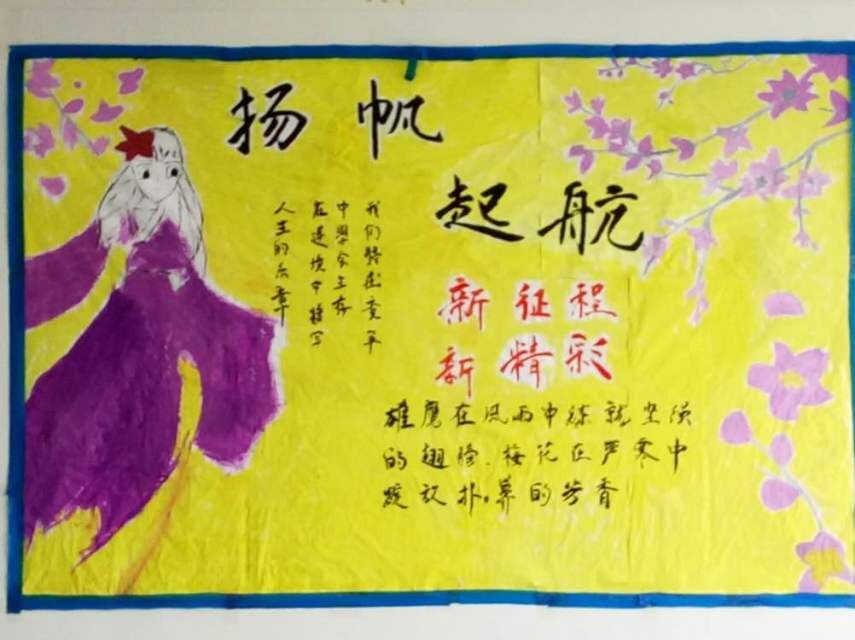 扬帆
起航
新征程
新精彩
我们将在变革
中学会生存
在逆境中谱写
人生的乐章
雄鹰在风雨中练就坚强
的翅膀.梅花在严寒中
绽放扑鼻的芳香